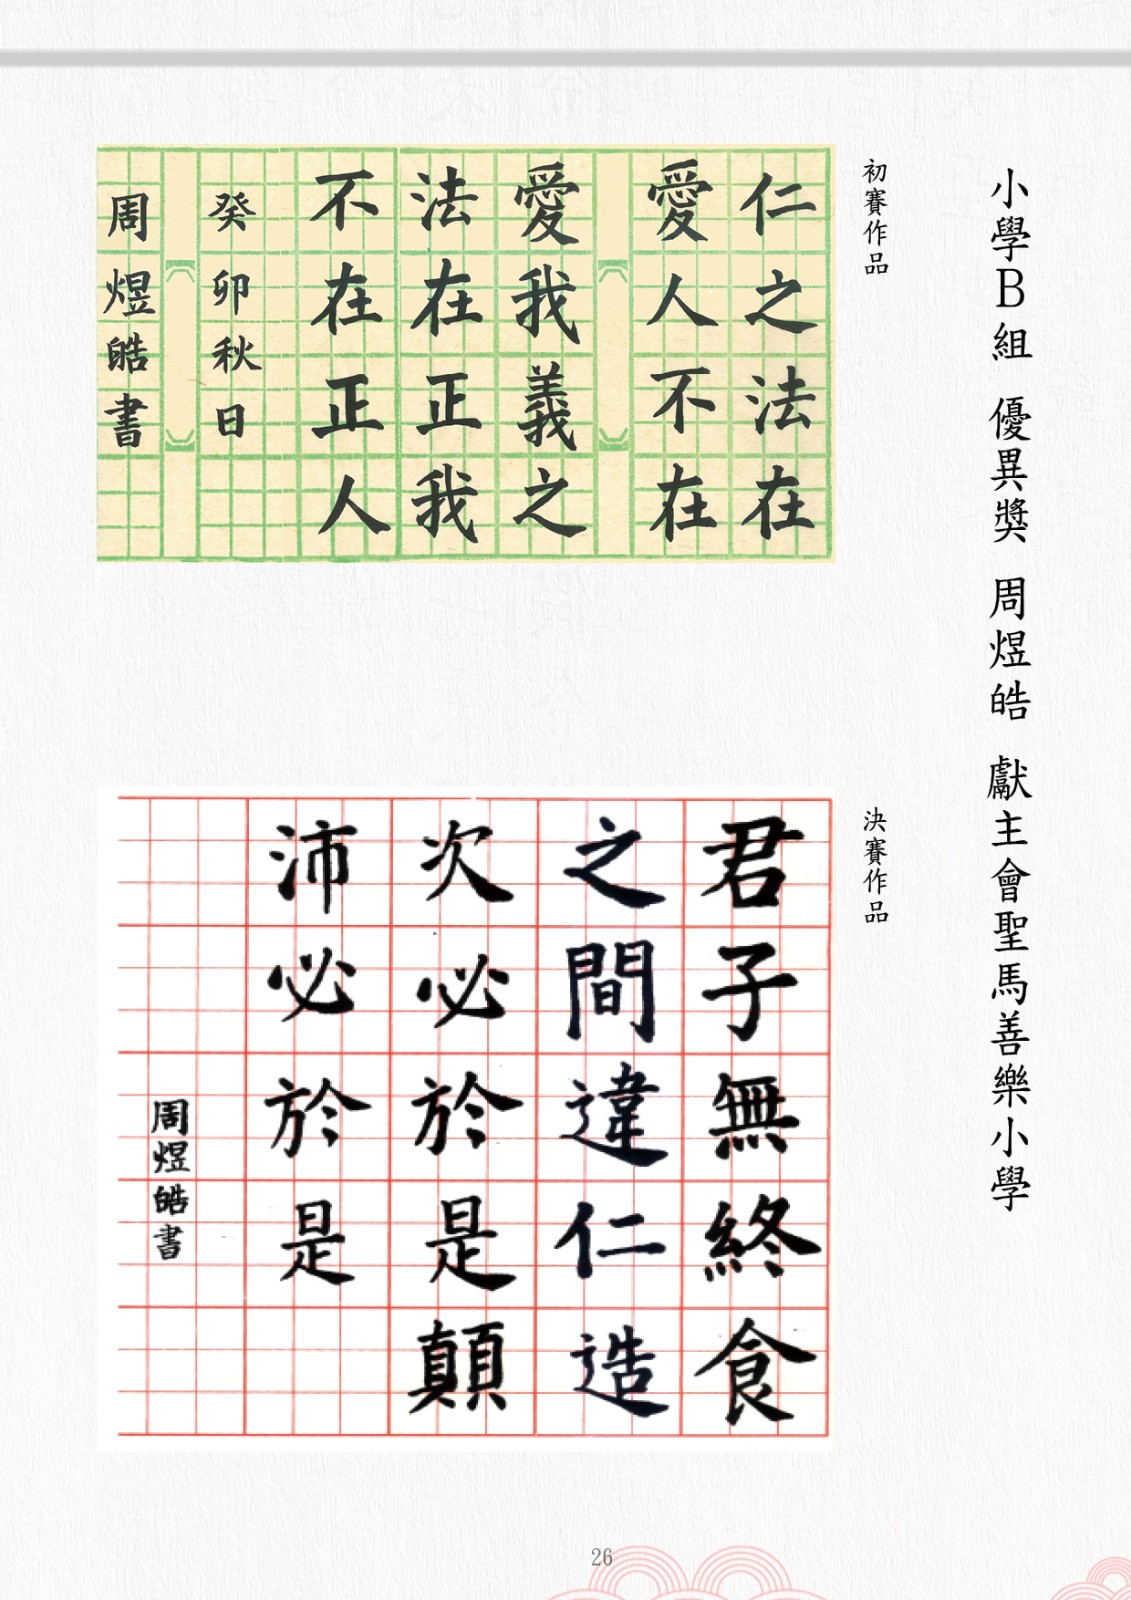 小學B組 優異獎 周煜皓 獻主會聖馬善樂小學
初賽作品
仁之法在
愛人不在
愛我義之
法在正我
不在正人
癸卯秋日
周煜皓書
決賽作品
君子無終食
之間違仁造
次必於是顛
沛必於是
周煜皓書
26